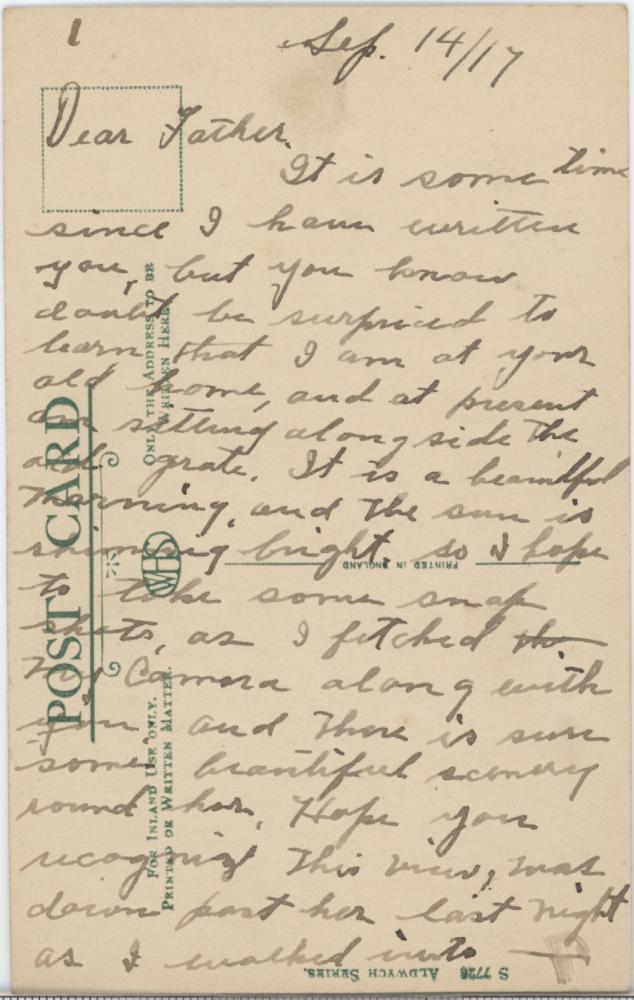 1
Sep. 14/17
Dear Father.
It is some time
since I have written
you, but you know
doubt be surprised to
learn that I am at your
old home, and at present
am setting alongside the
old grate. It is a beautiful
morning, and the sun is
shinning bright, so I hope
to take some snap
shots, as I fetched th
my Camera along with
and there is sure
some beautiful scenery
round her, Hope you
recognize this view, was
down past her last night
as I walked into
POST CARD
ONLY THE ADDRESS TO BE
WRITTEN HERE.
FOR INLAND USE ONLY.
PRINTED OR WRITTEN MATTER.
WHS
PRINTED IN ENGLAND
S 7728 ALDWYCH SERIES.